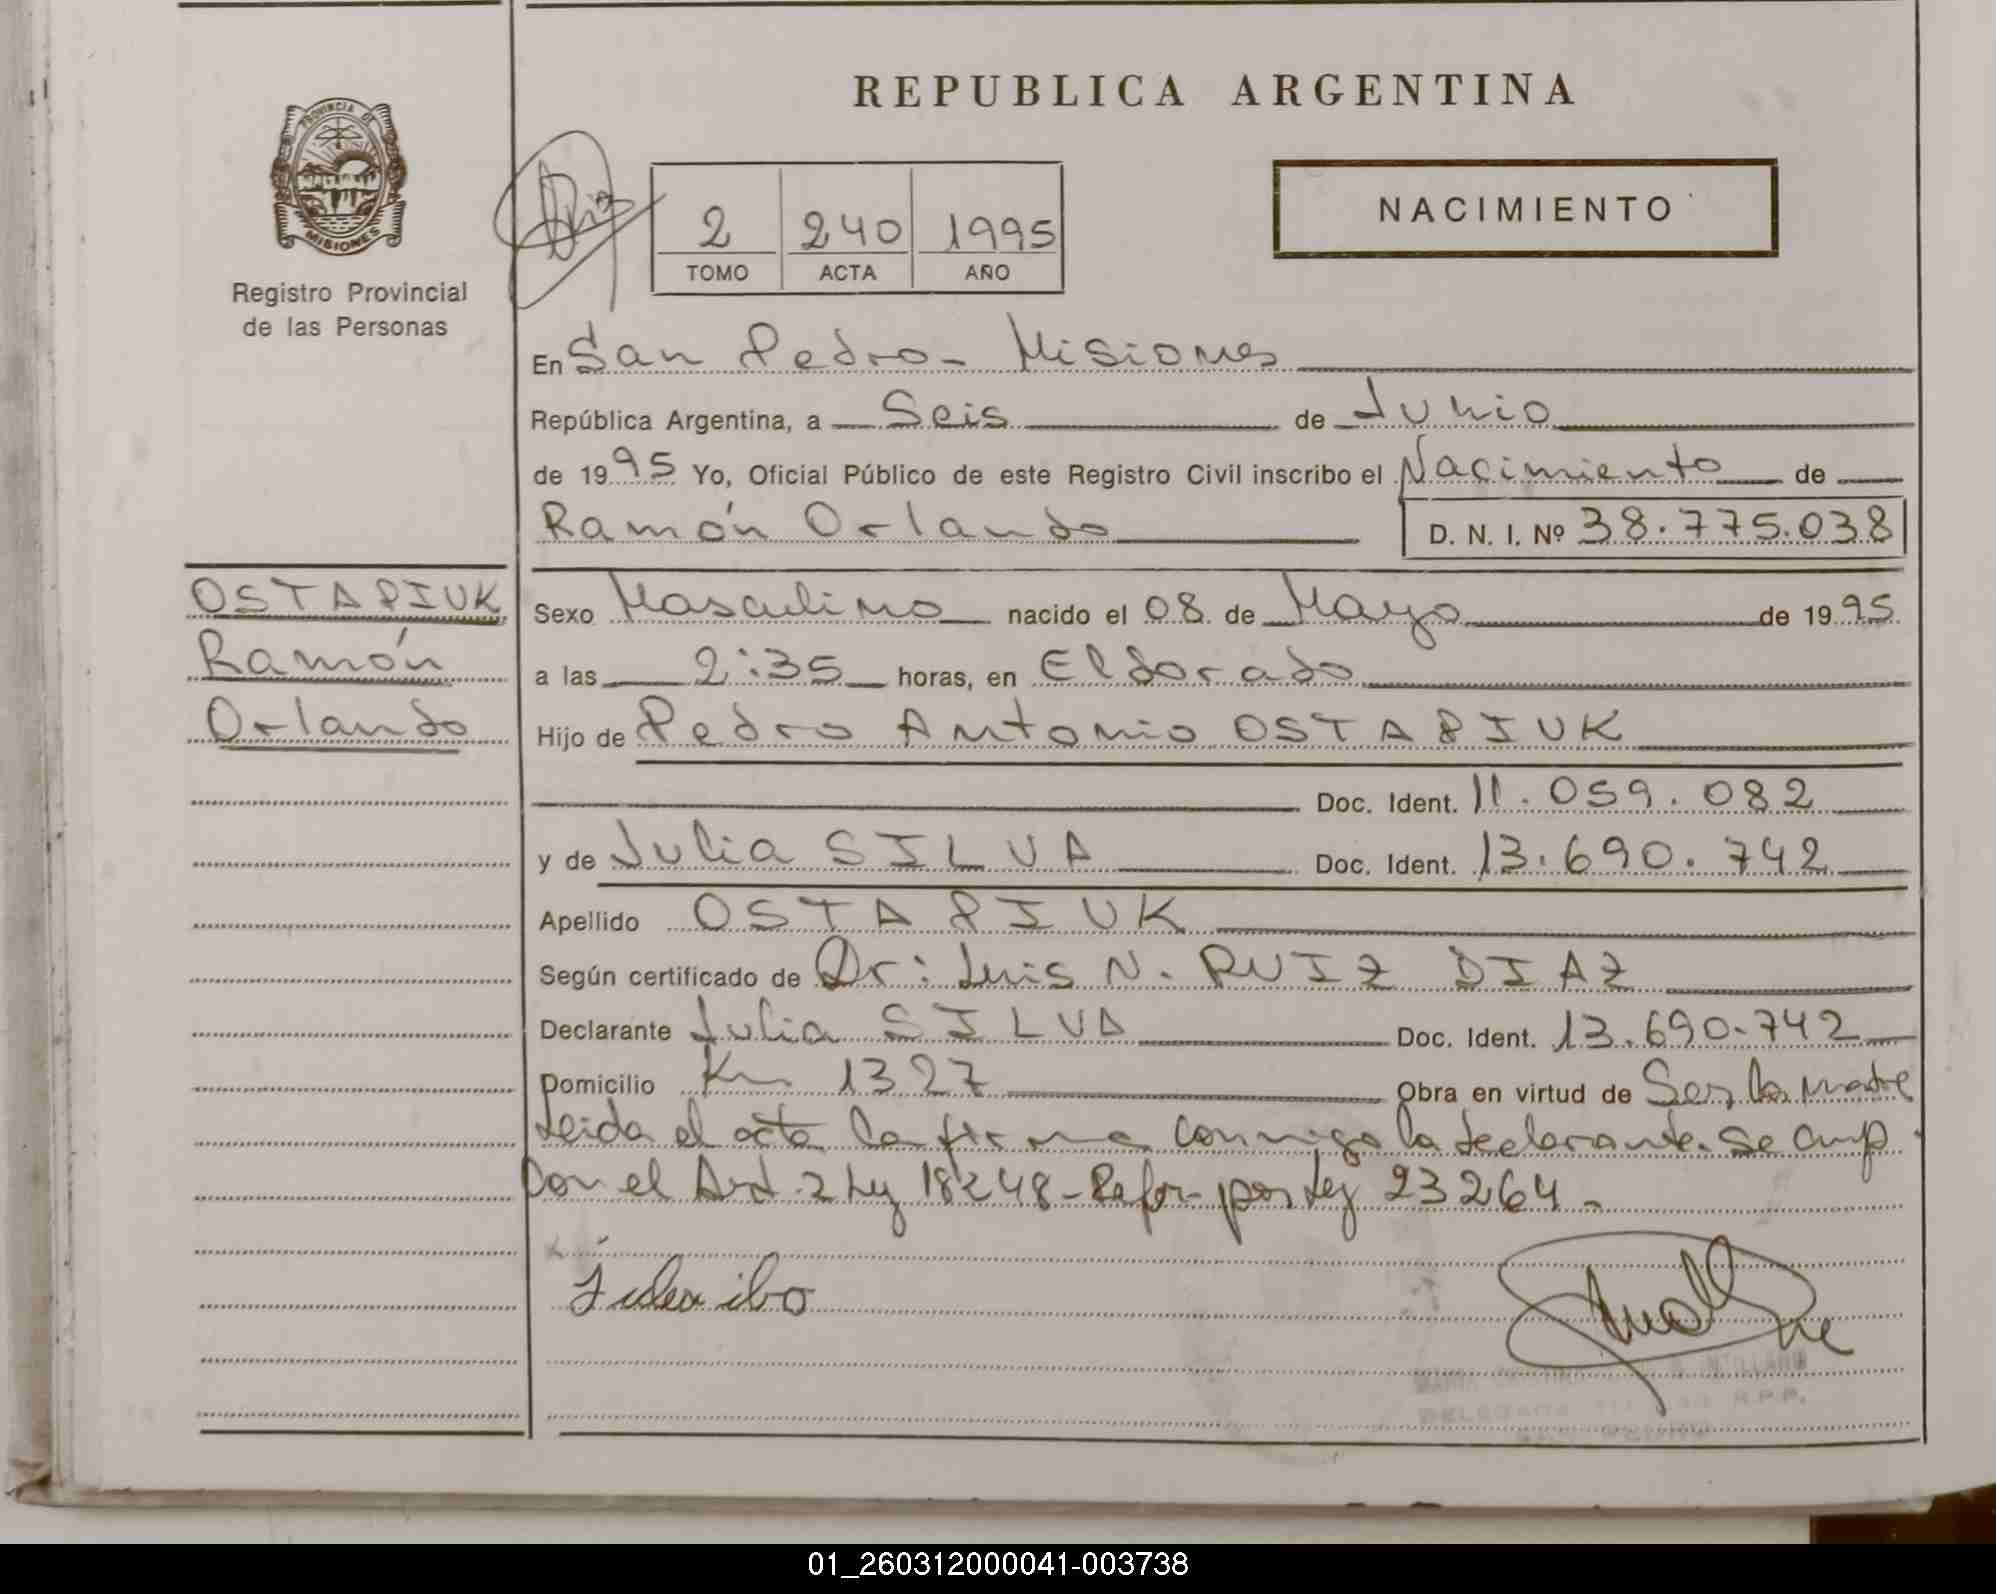 REPUBLICA ARGENTINA
PROVINCIA DE
MISIONES
Registro Provincial
de las Personas
2 240 1995
TOMO ACTA AÑO
NACIMIENTO
En San Pedro - Misiones
República Argentina, a Seis de Junio
de 1995 Yo, Oficial Público de este Registro Civil inscribo el Nacimiento de
Ramón Orlando D. N. I. Nº 38.775.038
OSTAPIUK
Ramón
Orlando
Sexo Masculino nacido el 08 de Mayo de 1995
a las 2:35 horas, en Eldorado
Hijo de Pedro Antonio OSTAPIUK
Doc. Ident. 11.059.082
y de Julia SILVA Doc. Ident. 13.690.742
Apellido OSTAPIUK
Según certificado de Dr: Luis N. RUIZ DIAZ
Declarante Julia SILVA Doc. Ident. 13.690.742
Domicilio Km 1327 Obra en virtud de Ser la madre
Leida el acta la firma conmigo la declarante. Se cump
Con el Art. 2 Ley 18248 - Refor- por Ley 23264.-
R.P.P.
01_260312000041-003738